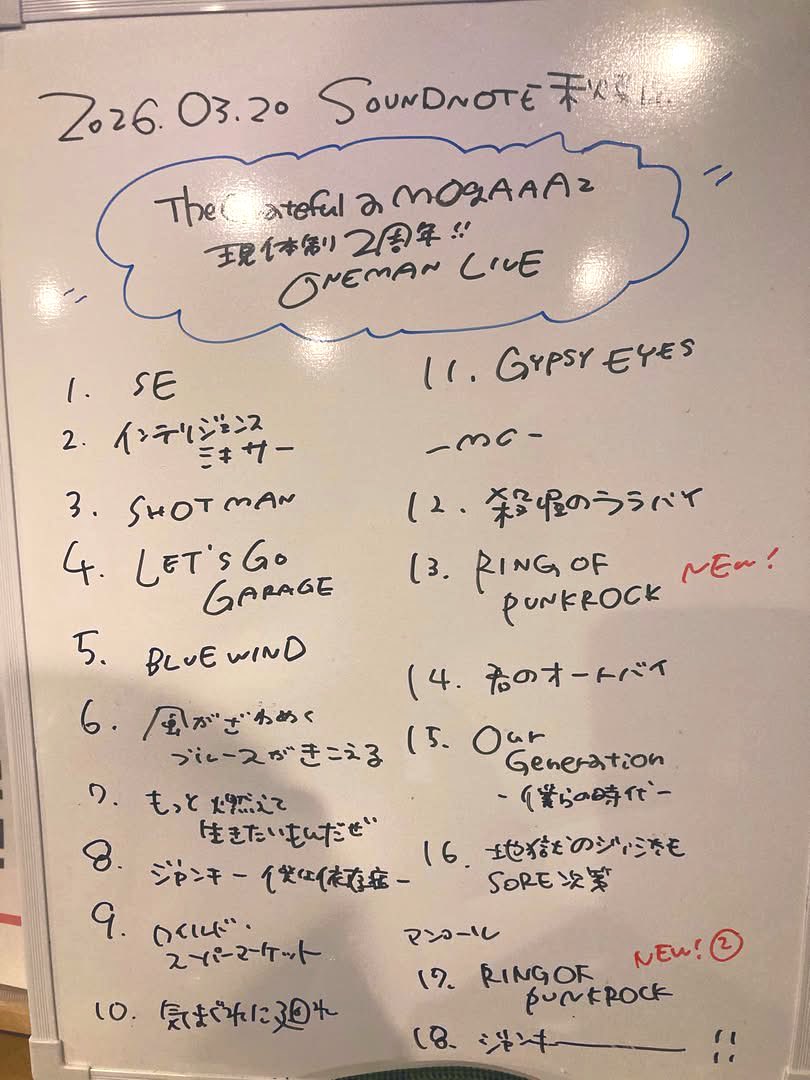 2026.03.20 SOUNDNOTE
The Grateful a MOgAAAz
現体制 2周年!!
ONEMAN LIVE
1. SE
2. インテリジェンス
ミキサー
3. SHOTMAN
4. LET'S GO
GARAGE
5. BLUE WIND
6. 風がざわめく
ブルースがきこえる
7. もっと燃えて
生きたいもんだぜ
8. ジャンキー -僕は依存症-
9. ワイルド・
スーパーマーケット
10. 気まぐれに週れ
11. GYPSY EYES
-MC-
12. のララバイ
13. RING OF
PUNKROCK NEW!
14. 君のオートバイ
15. Our
Generation
-僕らの時代-
16. 地獄の
SORE次第
アンコール
17. RING OF
PUNKROCK NEW!②
18. ジャンキー !!